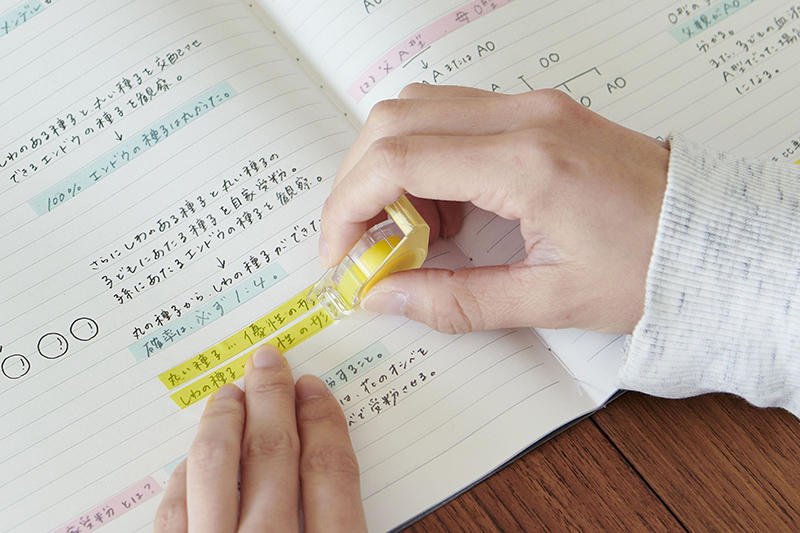 メンデル
しわのある種子と丸い種子を交配させ
できるエンドウの種子を観察。
↓
100% エンドウの種子は丸かった。
さらにしわのある種子と丸い種子の
子どもにあたる種子を自家受粉。
孫にあたるエンドウの種子を観察。
↓
丸の種子から、しわの種子ができた
確率は、必ず1:4。
丸い種子… 優性の
しわの種子 性の
すること。
は、花のオシベと
で受粉させる。
家受粉とは?
(2) 父A型、母O型
AA または AO
OO
AO AO
O型の
父親がAO
分かる。
また、子どもの血
A型だった場合
になる。